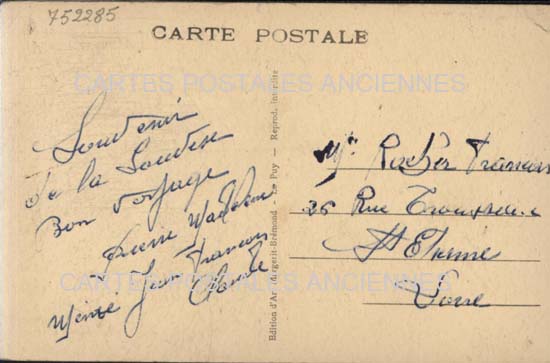 752285
CARTE POSTALE
CARTES POSTALES ANCIENNES
Souvenir
de la Louvesc
Bon voyage
Pierre Madeleine
Jean François
Claude
Edition d'Art Margerit-Brémond - Le Puy - Reprod. interdite
Mr Rocher François
36 Rue
St Etienne
Loire
CARTES POSTALES ANCIENNES